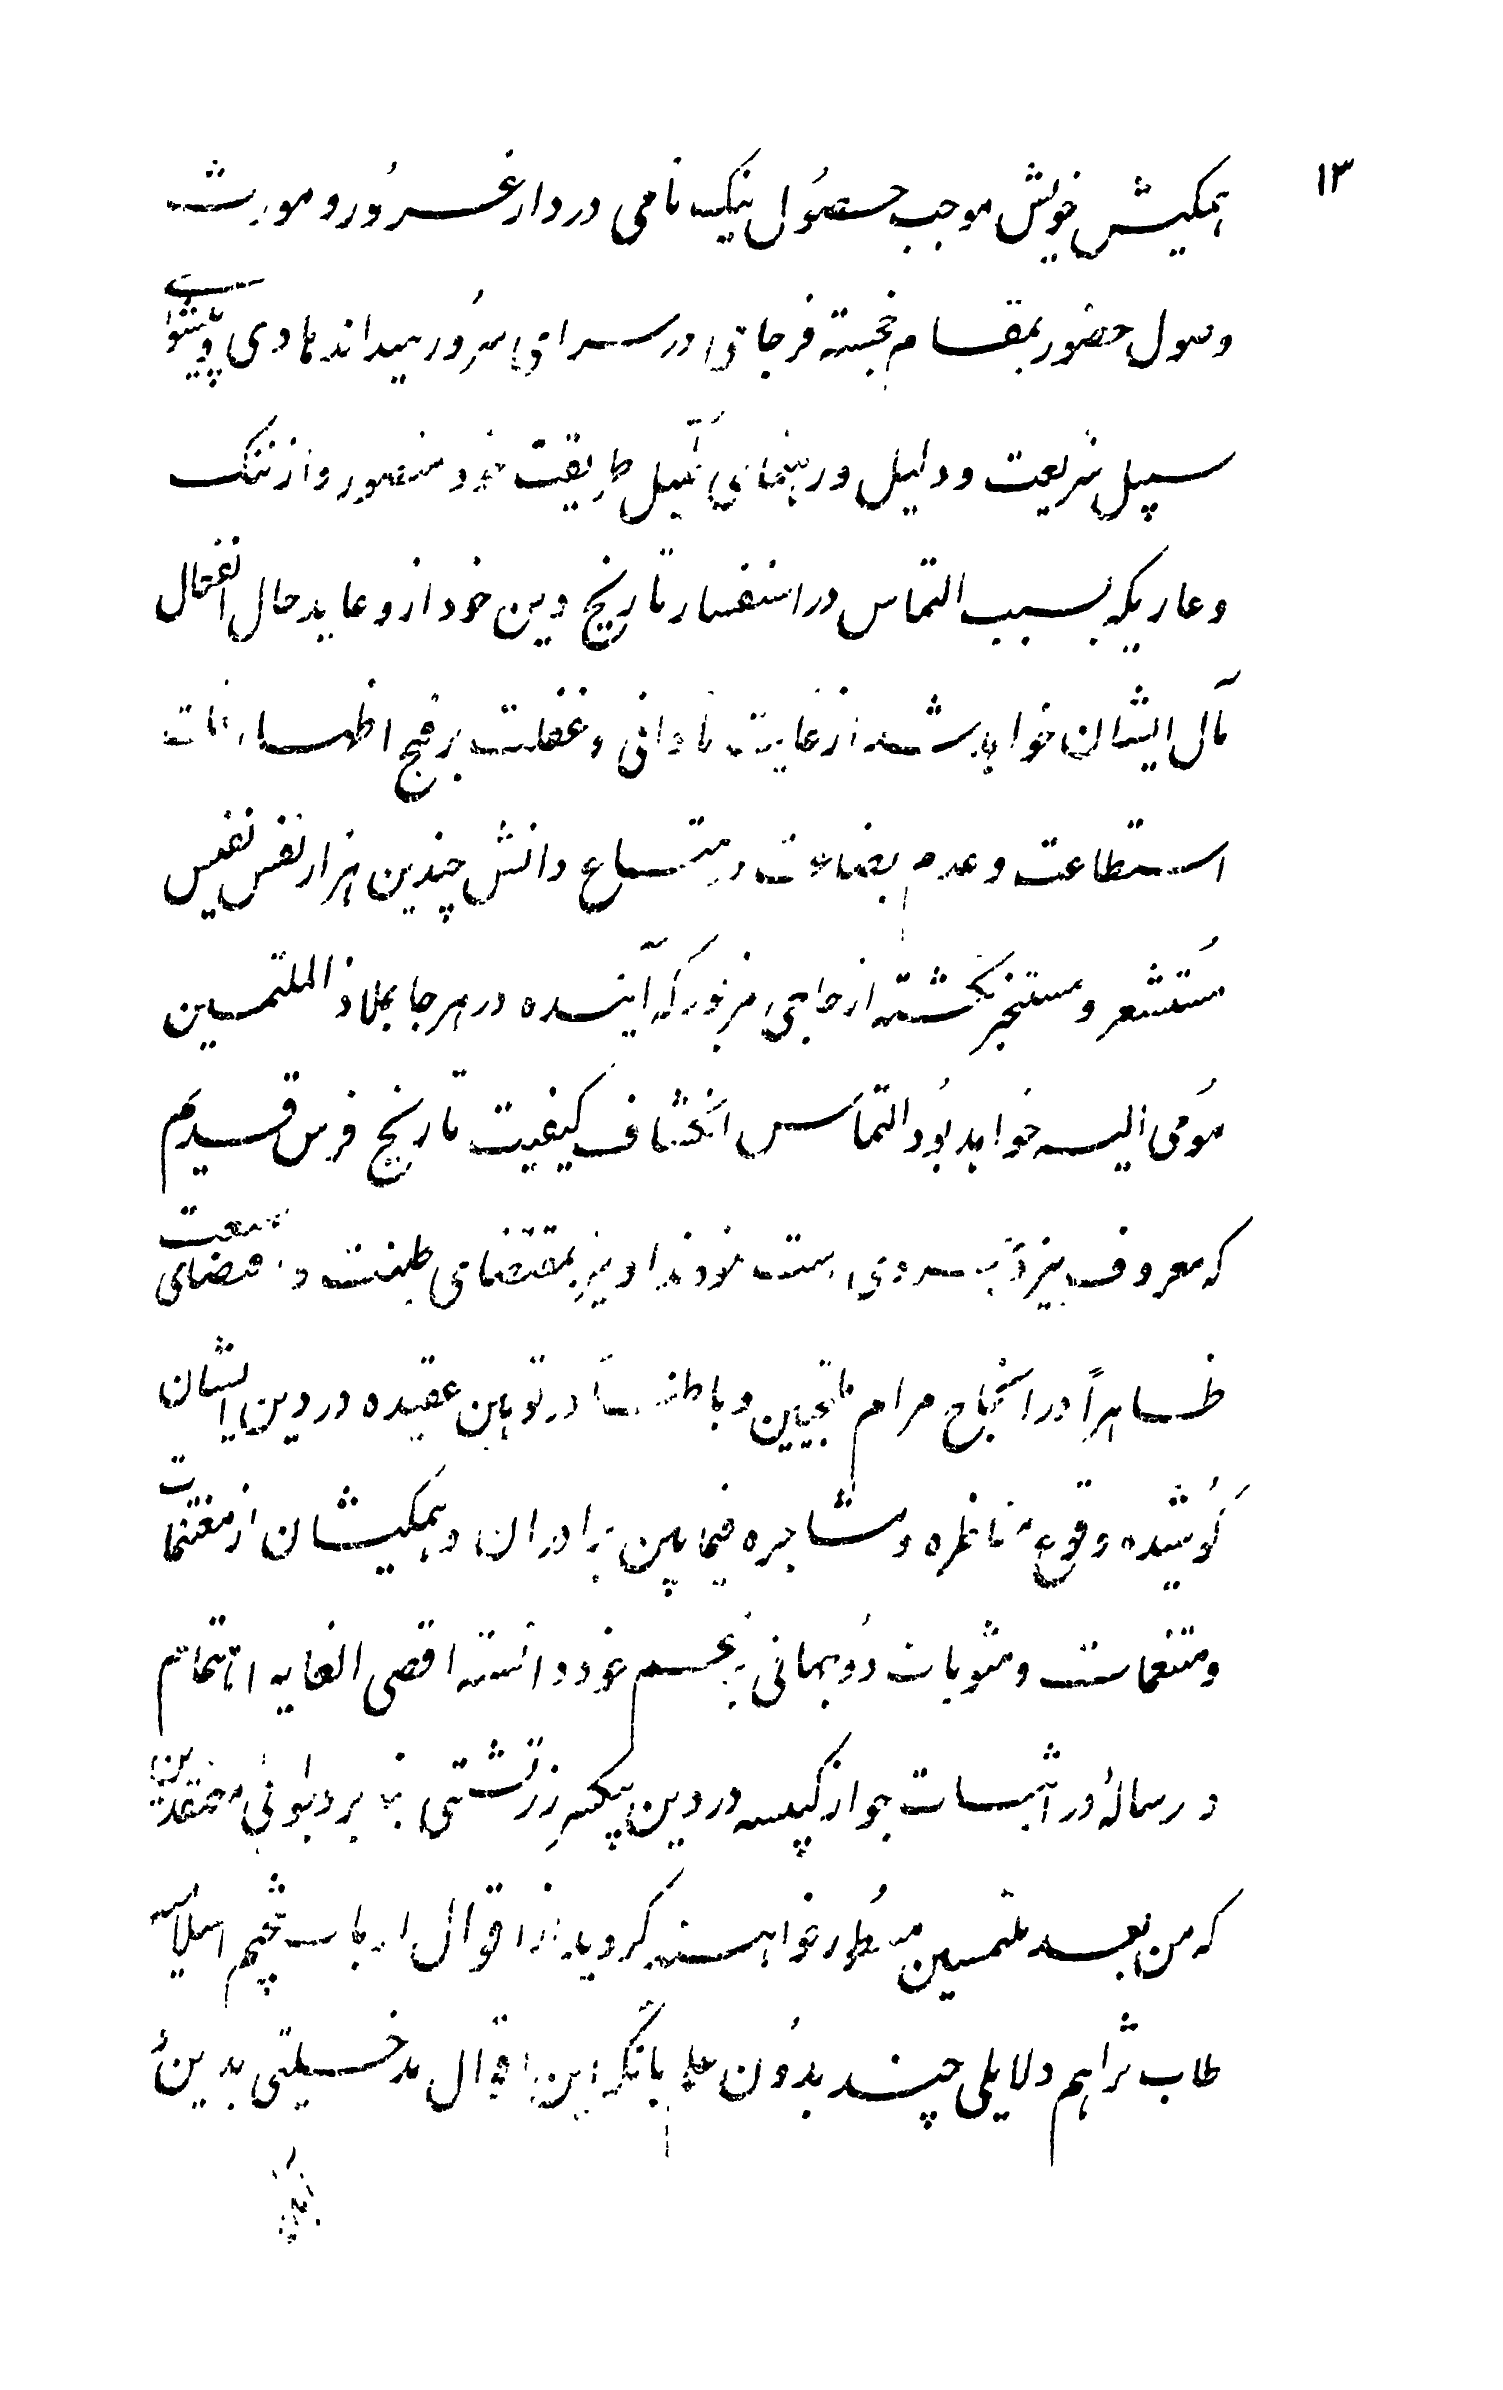 ۱۳
همکیش خویش موجب حصُول نیک نامی در دار غرُور و مورث
وصول حضور بمقام خجسته فرجامی در سرای سرُور میداند هادی و پیشوای
سبیل شریعت و دلیل و رهنمای نبیل طریقت خود متصور و از ننگ
و عاریکه بسبب التماس در استفسار تاریخ دین خود از و عاید حال انفعال
مآل ایشان خواهد شد از غایت نادانی و غفلت بر قبح اظهار
استطاعت و عدم بضاعت در متاع دانش چندین هزار نفس نفیس
مُستشعر و مستخبر نگشته از حاجی مزبور که آینده در هر جا بملاذ الملتمسین
مُومی الیه خواهد بُود التماس انکشاف کیفیت تاریخ فرس قدیم
که معروف بیزدَجردی است نمودند او نیز بمقتضای طینت و
ظاهراً در انجاح مرام ملتجیین و باطناً در توهین عقیده در دین ایشان
کُوشیده وقوع مناظره و مشاجره فیما بین برادران و همکیشان از مغتنمات
و متنعمات و مثوبات دُو جهانی بزعم خود دانسته اقصی الغایه اهتمام
و رسالهٔ در اثبات جواز کبیسه در دین پیکر زرتشتی بنا بر دعوی معتقدین
که من بعد ملتمسین مسطُور خواهند گردید از اقوال ارباب تنجیم اسلامیه
طاب ثراهم و دلایلی چند بدُون علم بآنکه این اقوال مدخلیتی بدین